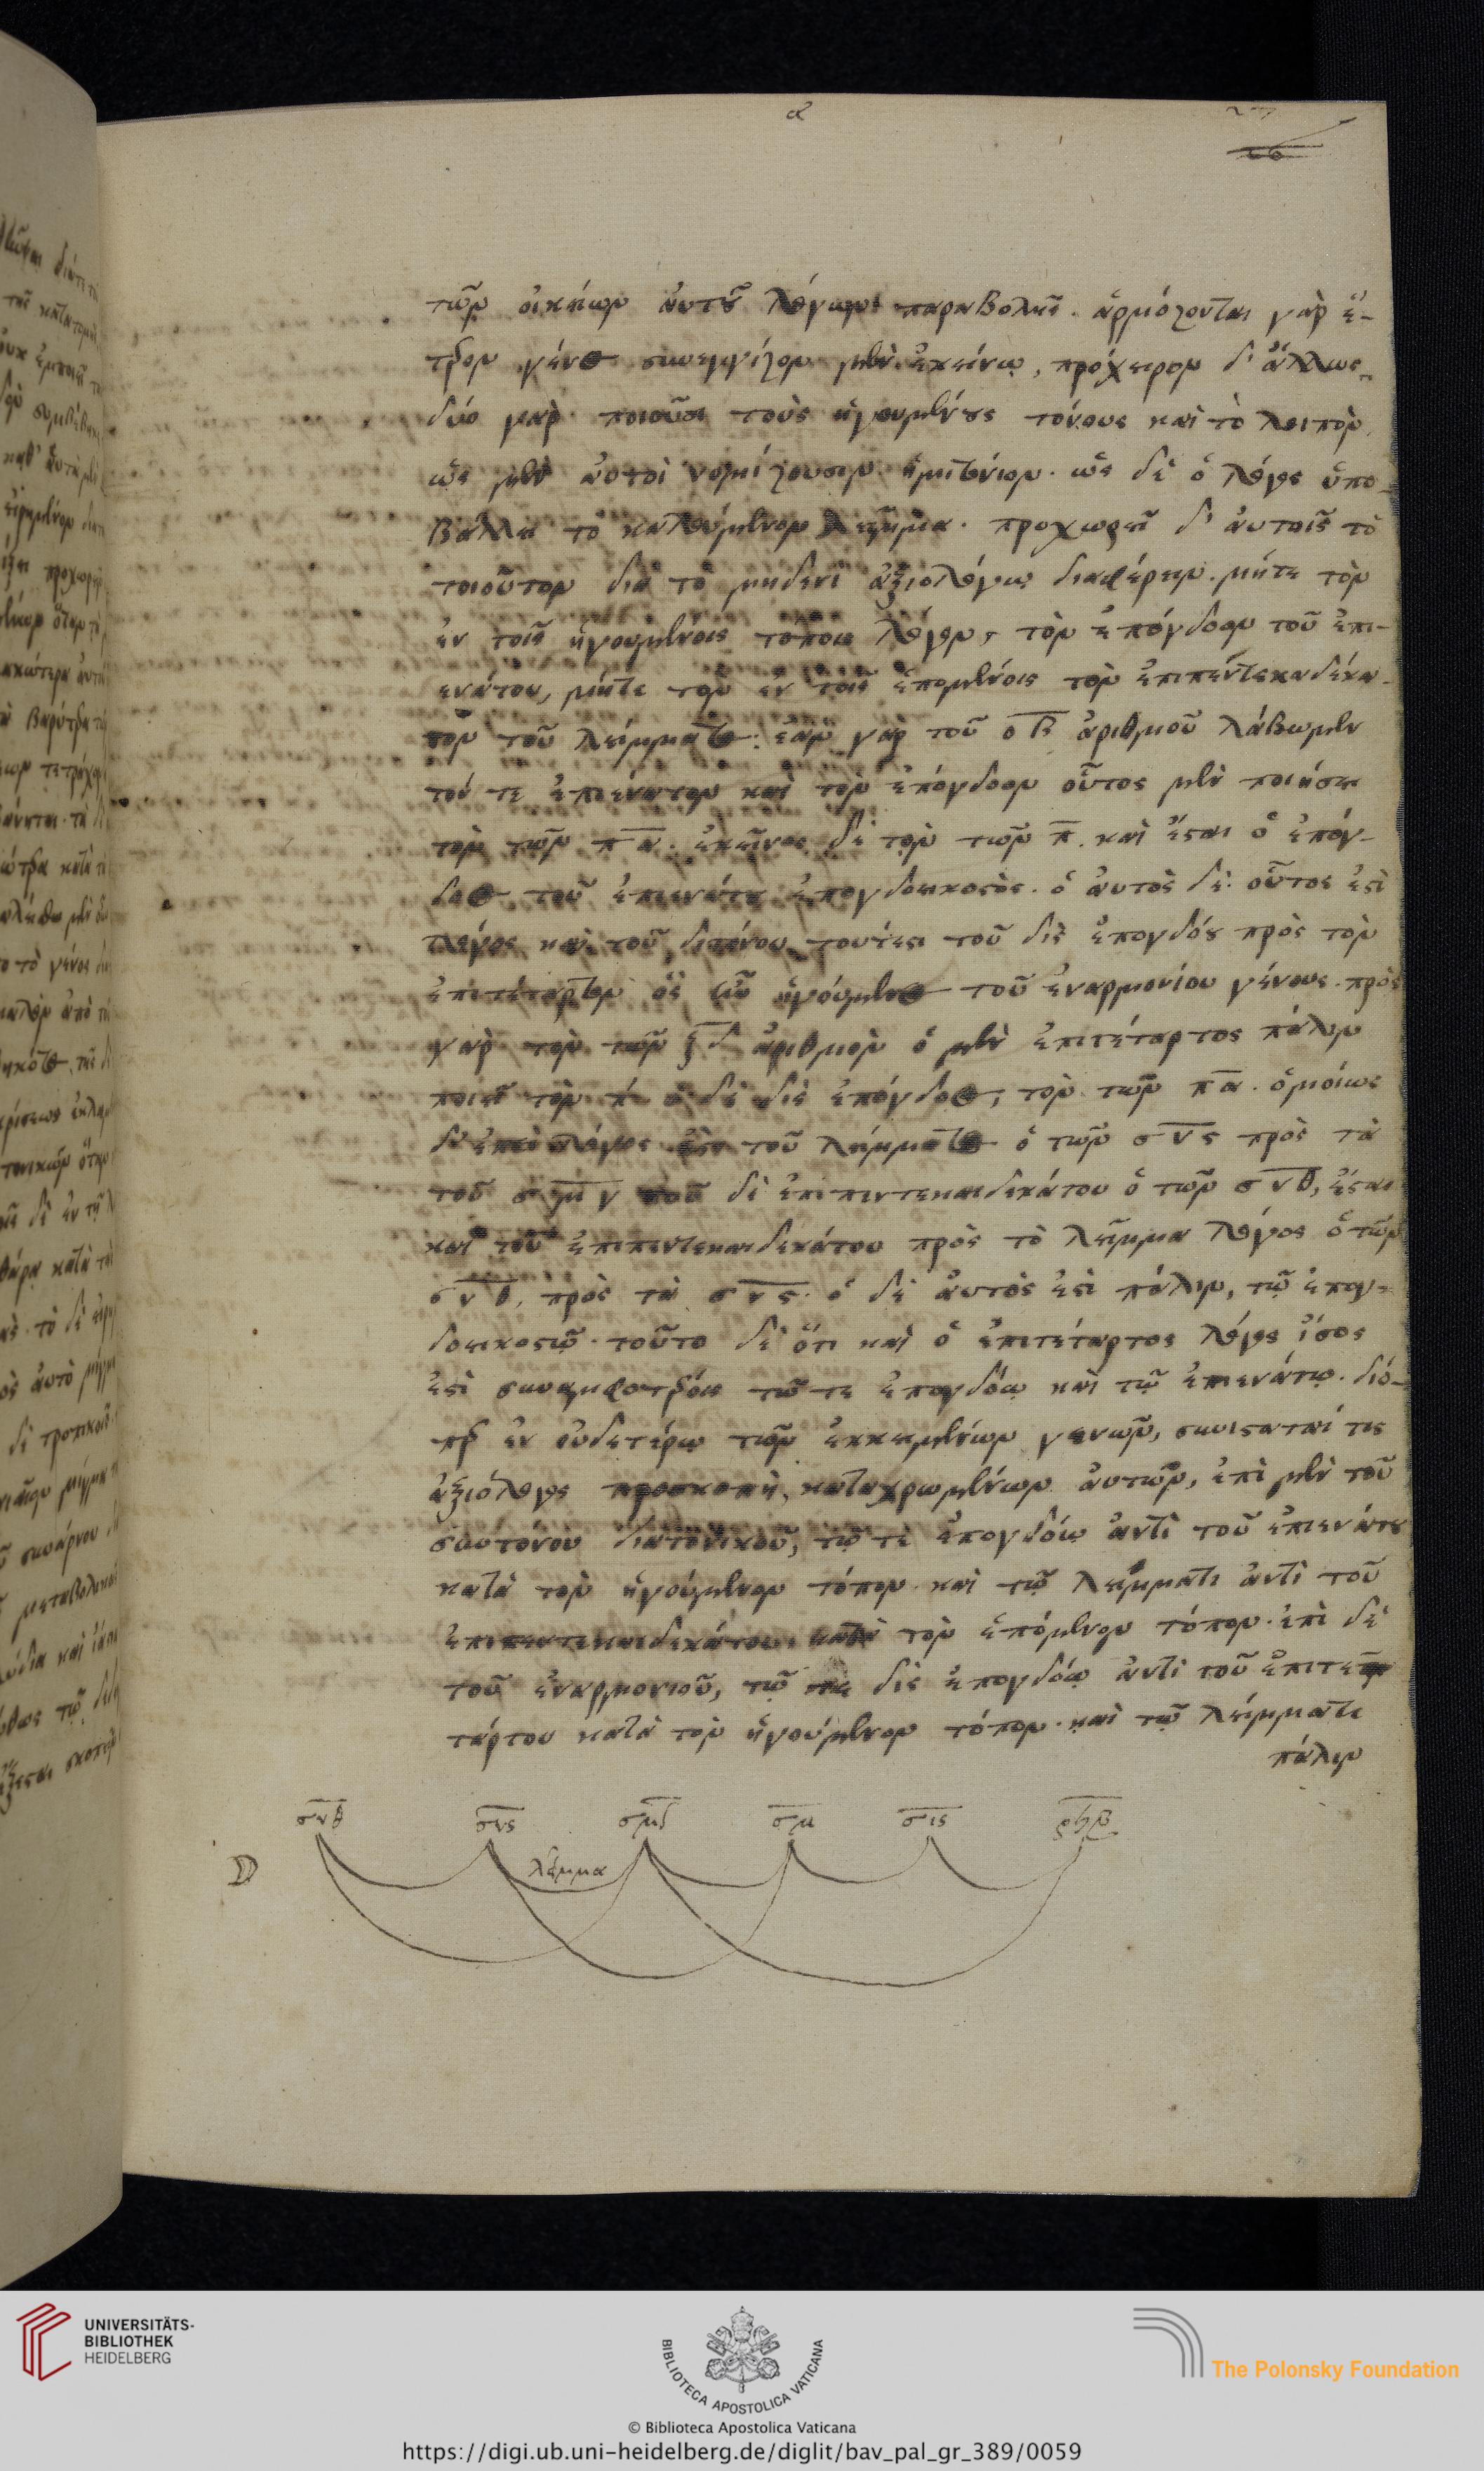 α
τῶν οἰκείων αὐτοῦ λόγων παραβολῆς. ἁρμόζονται γὰρ ἕ-
τερον γένος συνεγγίζον μὲν ἐκείνῳ, πρόχειρον δ' ἄλλως.
δύο γὰρ ποιοῦσι τοὺς ἡγουμένους τόνους καὶ τὸ λοιπὸν
ὡς μὲν αὐτοὶ νομίζουσιν ἡμιτόνιον. ὡς δὲ ὁ λόγος ὑπο-
βάλλει τὸ καλούμενον λεῖμμα. προχωρεῖ δ' αὐτοῖς τὸ
τοιοῦτον διὰ τὸ μηδενὶ ἀξιολόγῳ διαφέρειν. μήτε τὸν
ἐν τοῖς ἡγουμένοις τόποις λόγον, τὸν ἐπόγδοον τοῦ ἐπι-
ενάτου, μήτε τὸν ἐν τοῖς ἑπομένοις τὸν ἐπιπεντεκαδέκα-
τον τοῦ λείμματος. ἐὰν γὰρ τοῦ οβ ἀριθμοῦ λάβωμεν
τόν τε ἐπιένατον καὶ τὸν ἐπόγδοον οὗτος μὲν ποιήσει
τὸν τῶν πα. ἐκεῖνος δὲ τὸν τῶν π. καὶ ἔσται ὁ ἐπόγ-
δοος τοῦ ἐπιενάτου ἐπογδοηκοστός. ὁ αὐτὸς δὲ οὗτος ἐστὶ
λόγος καὶ τοῦ διτόνου τουτέστι τοῦ δὶς ἐπογδόου πρὸς τὸν
ἐπιτέταρτον ὃς ἦν ἡγούμενος τοῦ ἐναρμονίου γένους. πρὸς
γὰρ τὸν τῶν ξδ ἀριθμὸν ὁ μὲν ἐπιτέταρτος πάλιν
ποιεῖ τὸν π ὁ δὲ δὶς ἐπόγδοος, τὸν τῶν πα. ὁμοίως
δ' ἐπεὶ λόγος ἐστι τοῦ λείμματος ὁ τῶν σνς πρὸς τὰ
τοῦ σμγ τοῦ δὲ ἐπιπεντεκαιδεκάτου ὁ τῶν σνθ, ἔσται
καὶ τοῦ ἐπιπεντεκαιδεκάτου πρὸς τὸ λεῖμμα λόγος ὁ τῶν
σνθ, πρὸς τὰ σνς. ὁ δὲ αὐτὸς ἐστὶ πάλιν, τῷ ἐπογ-
δοηκοστῷ. τοῦτο δὲ ὅτι καὶ ὁ ἐπιτέταρτος λόγος ἴσος
ἐστὶ συναμφοτέροις τῷ τε ἐπογδόῳ καὶ τῷ ἐπιενάτῳ. διό-
περ ἐν οὐδετέρῳ τῶν ἐκκειμένων γενῶν, συνίσταταί τις
ἀξιόλογος προσκοπὴ, καταχρωμένων αὐτῶν, ἐπὶ μὲν τοῦ
συντόνου διατονικοῦ, τῷ τε ἐπογδόῳ ἀντὶ τοῦ ἐπιενάτου
κατὰ τὸν ἡγούμενον τόπον καὶ τῷ λείμματι ἀντὶ τοῦ
ἐπιπεντεκαιδεκάτου κατὰ τὸν ἑπόμενον τόπον. ἐπὶ δὲ
τοῦ ἐναρμονιοῦ, τῷ δὶς ἐπογδόῳ ἀντὶ τοῦ ἐπιτε
τάρτου κατὰ τὸν ἡγούμενον τόπον. καὶ τῷ λείμματι
πάλιν
σνθ σνς σμγ σμ σις ρϟβ
λεῖμμα
UNIVERSITÄTS-
BIBLIOTHEK
HEIDELBERG
BIBLIOTECA APOSTOLICA VATICANA
The Polonsky Foundation
© Biblioteca Apostolica Vaticana
https://digi.ub.uni-heidelberg.de/diglit/bav_pal_gr_389/0059